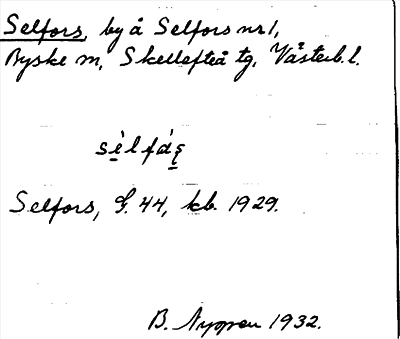 Selfors, by å Selfors nr 1,
Byske sn, Skellefteå tg, Västerb. l.
sèlfáş
Selfors, G. 44, kb. 1929.
B. Nygren 1932.